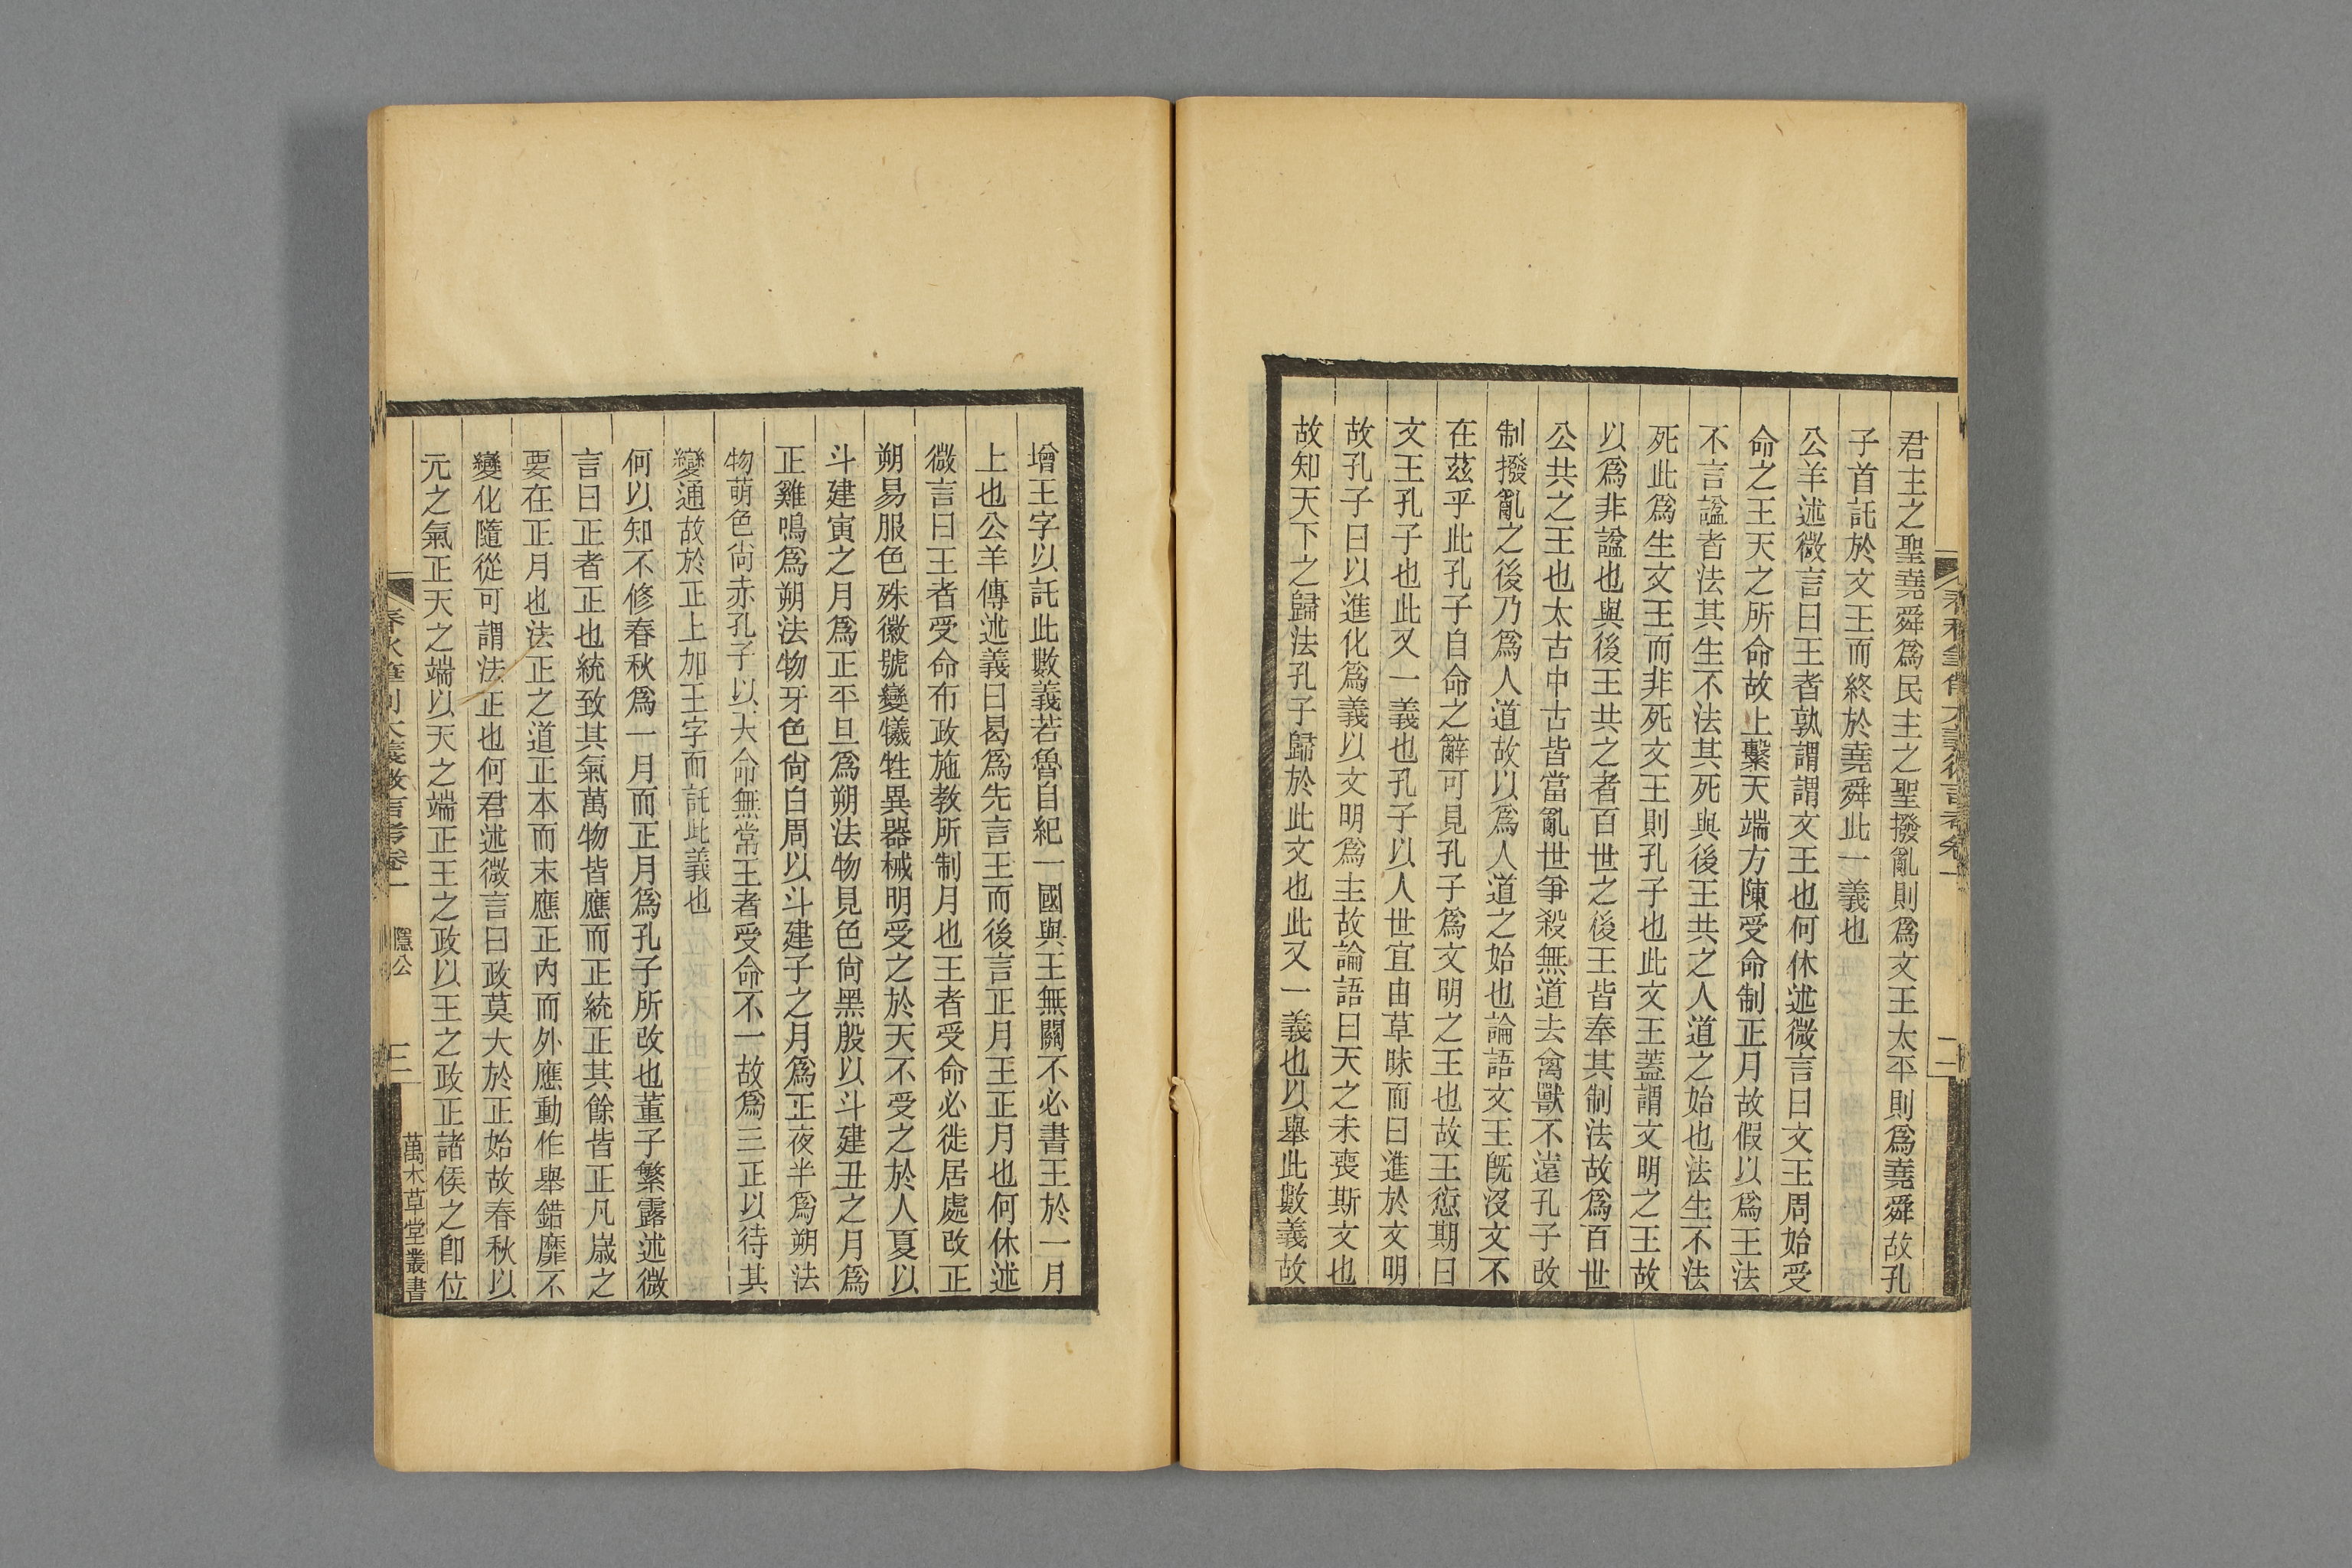 君主之聖堯舜爲民主之聖撥亂則爲文王太平則爲堯舜故孔
子首託於文王而終於堯舜此一義也
公羊述微言曰王者孰謂謂文王也何休述微言曰文王周始受
命之王天之所命故上繫天端方陳受命制正月故假以爲王法
不言諡者法其生不法其死與後王共之人道之始也法生不法
死此爲生文王而非死文王則孔子也此文王蓋謂文明之王故
以爲非諡也與後王共之者百世之後王皆奉其制法故爲百世
公共之王也太古中古皆當亂世爭殺無道去禽獸不遠孔子改
制撥亂之後乃爲人道故以爲人道之始也論語文王旣沒文不
在茲乎此孔子自命之辭可見孔子爲文明之王也故王愆期曰
文王孔子也此又一義也孔子以人世宜由草昧而日進於文明
故孔子曰以進化爲義以文明爲主故論語曰天之未喪斯文也
故知天下之歸法孔子歸於此文也此又一義也以舉此數義故
二
增王字以託此數義若魯自紀一國與王無關不必書王於一月
上也公羊傳述義曰曷爲先言王而後言正月王正月也何休述
微言曰王者受命布政施教所制月也王者受命必徙居處改正
朔易服色殊徽號變犧牲異器械明受之於天不受之於人夏以
斗建寅之月爲正平旦爲朔法物見色尙黑殷以斗建丑之月爲
正雞鳴爲朔法物牙色尙白周以斗建子之月爲正夜半爲朔法
物萌色尙赤孔子以大命無常王者受命不一故爲三正以待其
變通故於正上加王字而託此義也
何以知不修春秋爲一月而正月爲孔子所改也董子繁露述微
言曰正者正也統致其氣萬物皆應而正統正其餘皆正凡嵗之
要在正月也法正之道正本而末應正內而外應動作舉錯靡不
變化隨從可謂法正也何君述微言曰政莫大於正始故春秋以
元之氣正天之端以天之端正王之政以王之政正諸侯之卽位
春秋筆削大義微言考卷一 隱公 三 萬木草堂叢書